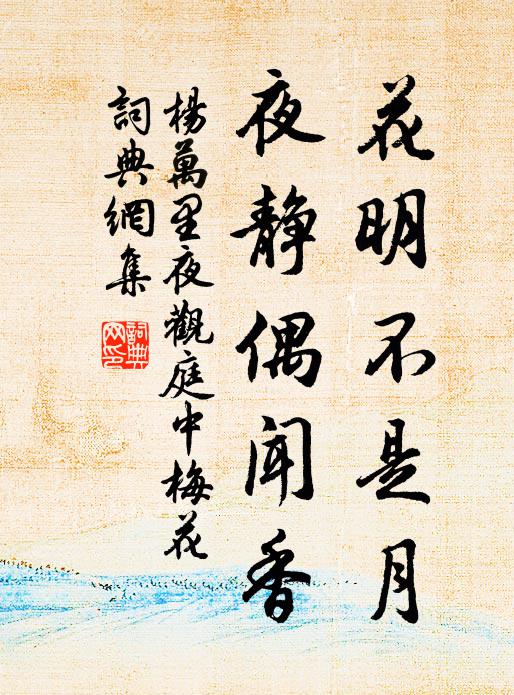 花明不是月
夜静偶闻香
楊萬里夜觀庭中梅花
詞典網集
詞典网印